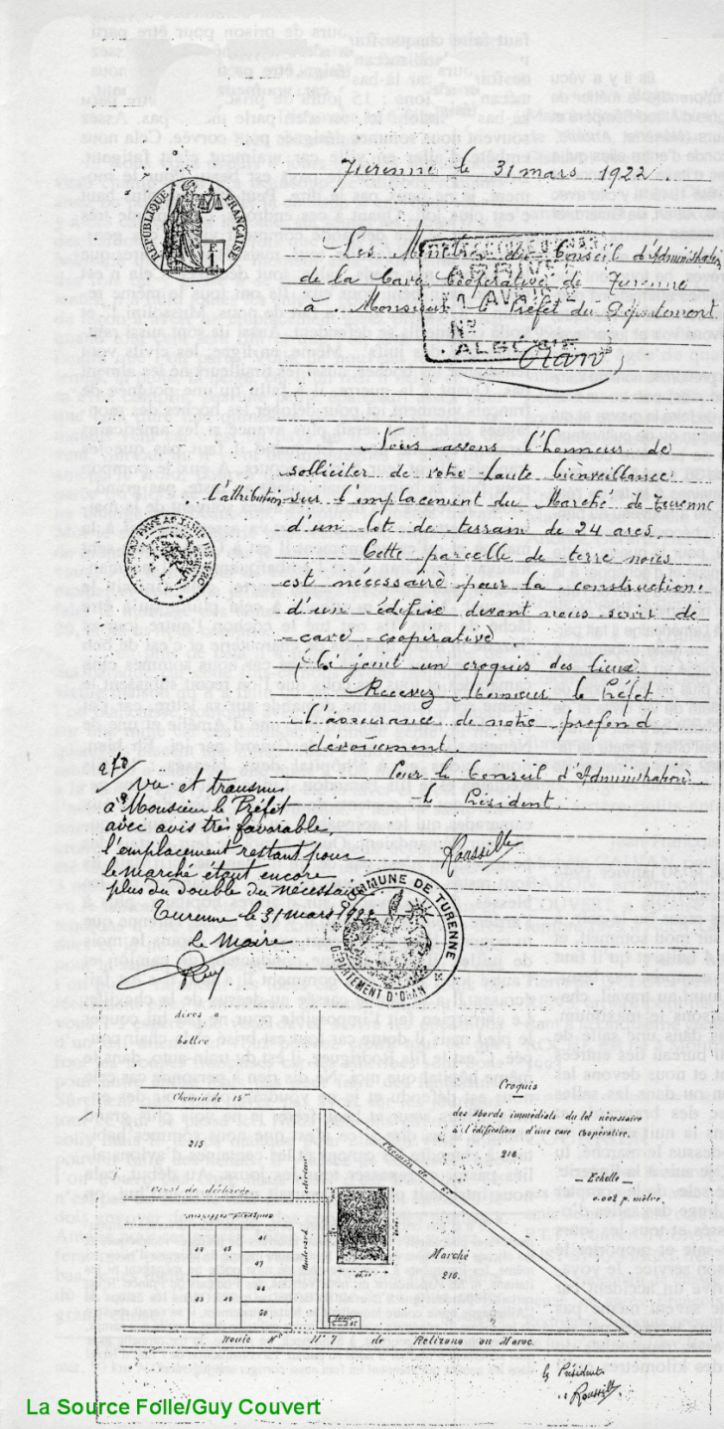 Turenne le 31 mars 1922.
RÉPUBLIQUE FRANÇAISE
Les Membres du Conseil d'Administration
de la Cave Coopérative de Turenne
à Monsieur le Préfet du Département
ARRIVÉE
AVRIL
N°
ALGÉRIE
Oran
Nous avons l'honneur de
solliciter de votre haute bienveillance
l'attribution sur l'emplacement du Marché de Turenne
d'un lot de terrain de 24 ares.
Cette parcelle de terre nous
est nécessaire pour la construction
d'un édifice devant nous servir de
cave coopérative
Ci joint un croquis des lieux
Recevez Monsieur le Préfet
l'assurance de notre profond
dévouement.
Pour le Conseil d'Administration
le Président
Roussille
Vu et transmis
à Monsieur le Préfet
avec avis très favorable,
l'emplacement restant pour
le marché étant encore
plus du double du nécessaire
Turenne le 31 mars 1922
Le Maire
COMMUNE DE TURENNE
DÉPARTEMENT D'ORAN
Croquis
des abords immédiats du lot nécessaire
à l'édification d'une cave coopérative.
216.
Echelle
0.002 p. mètre.
Chemin de 15m
215
Chemin de
Boulevard
extérieur
Marché
216.
Route Nle N° 7 de Relizane au Maroc
le Président
Roussille
La Source Folle/Guy Couvert